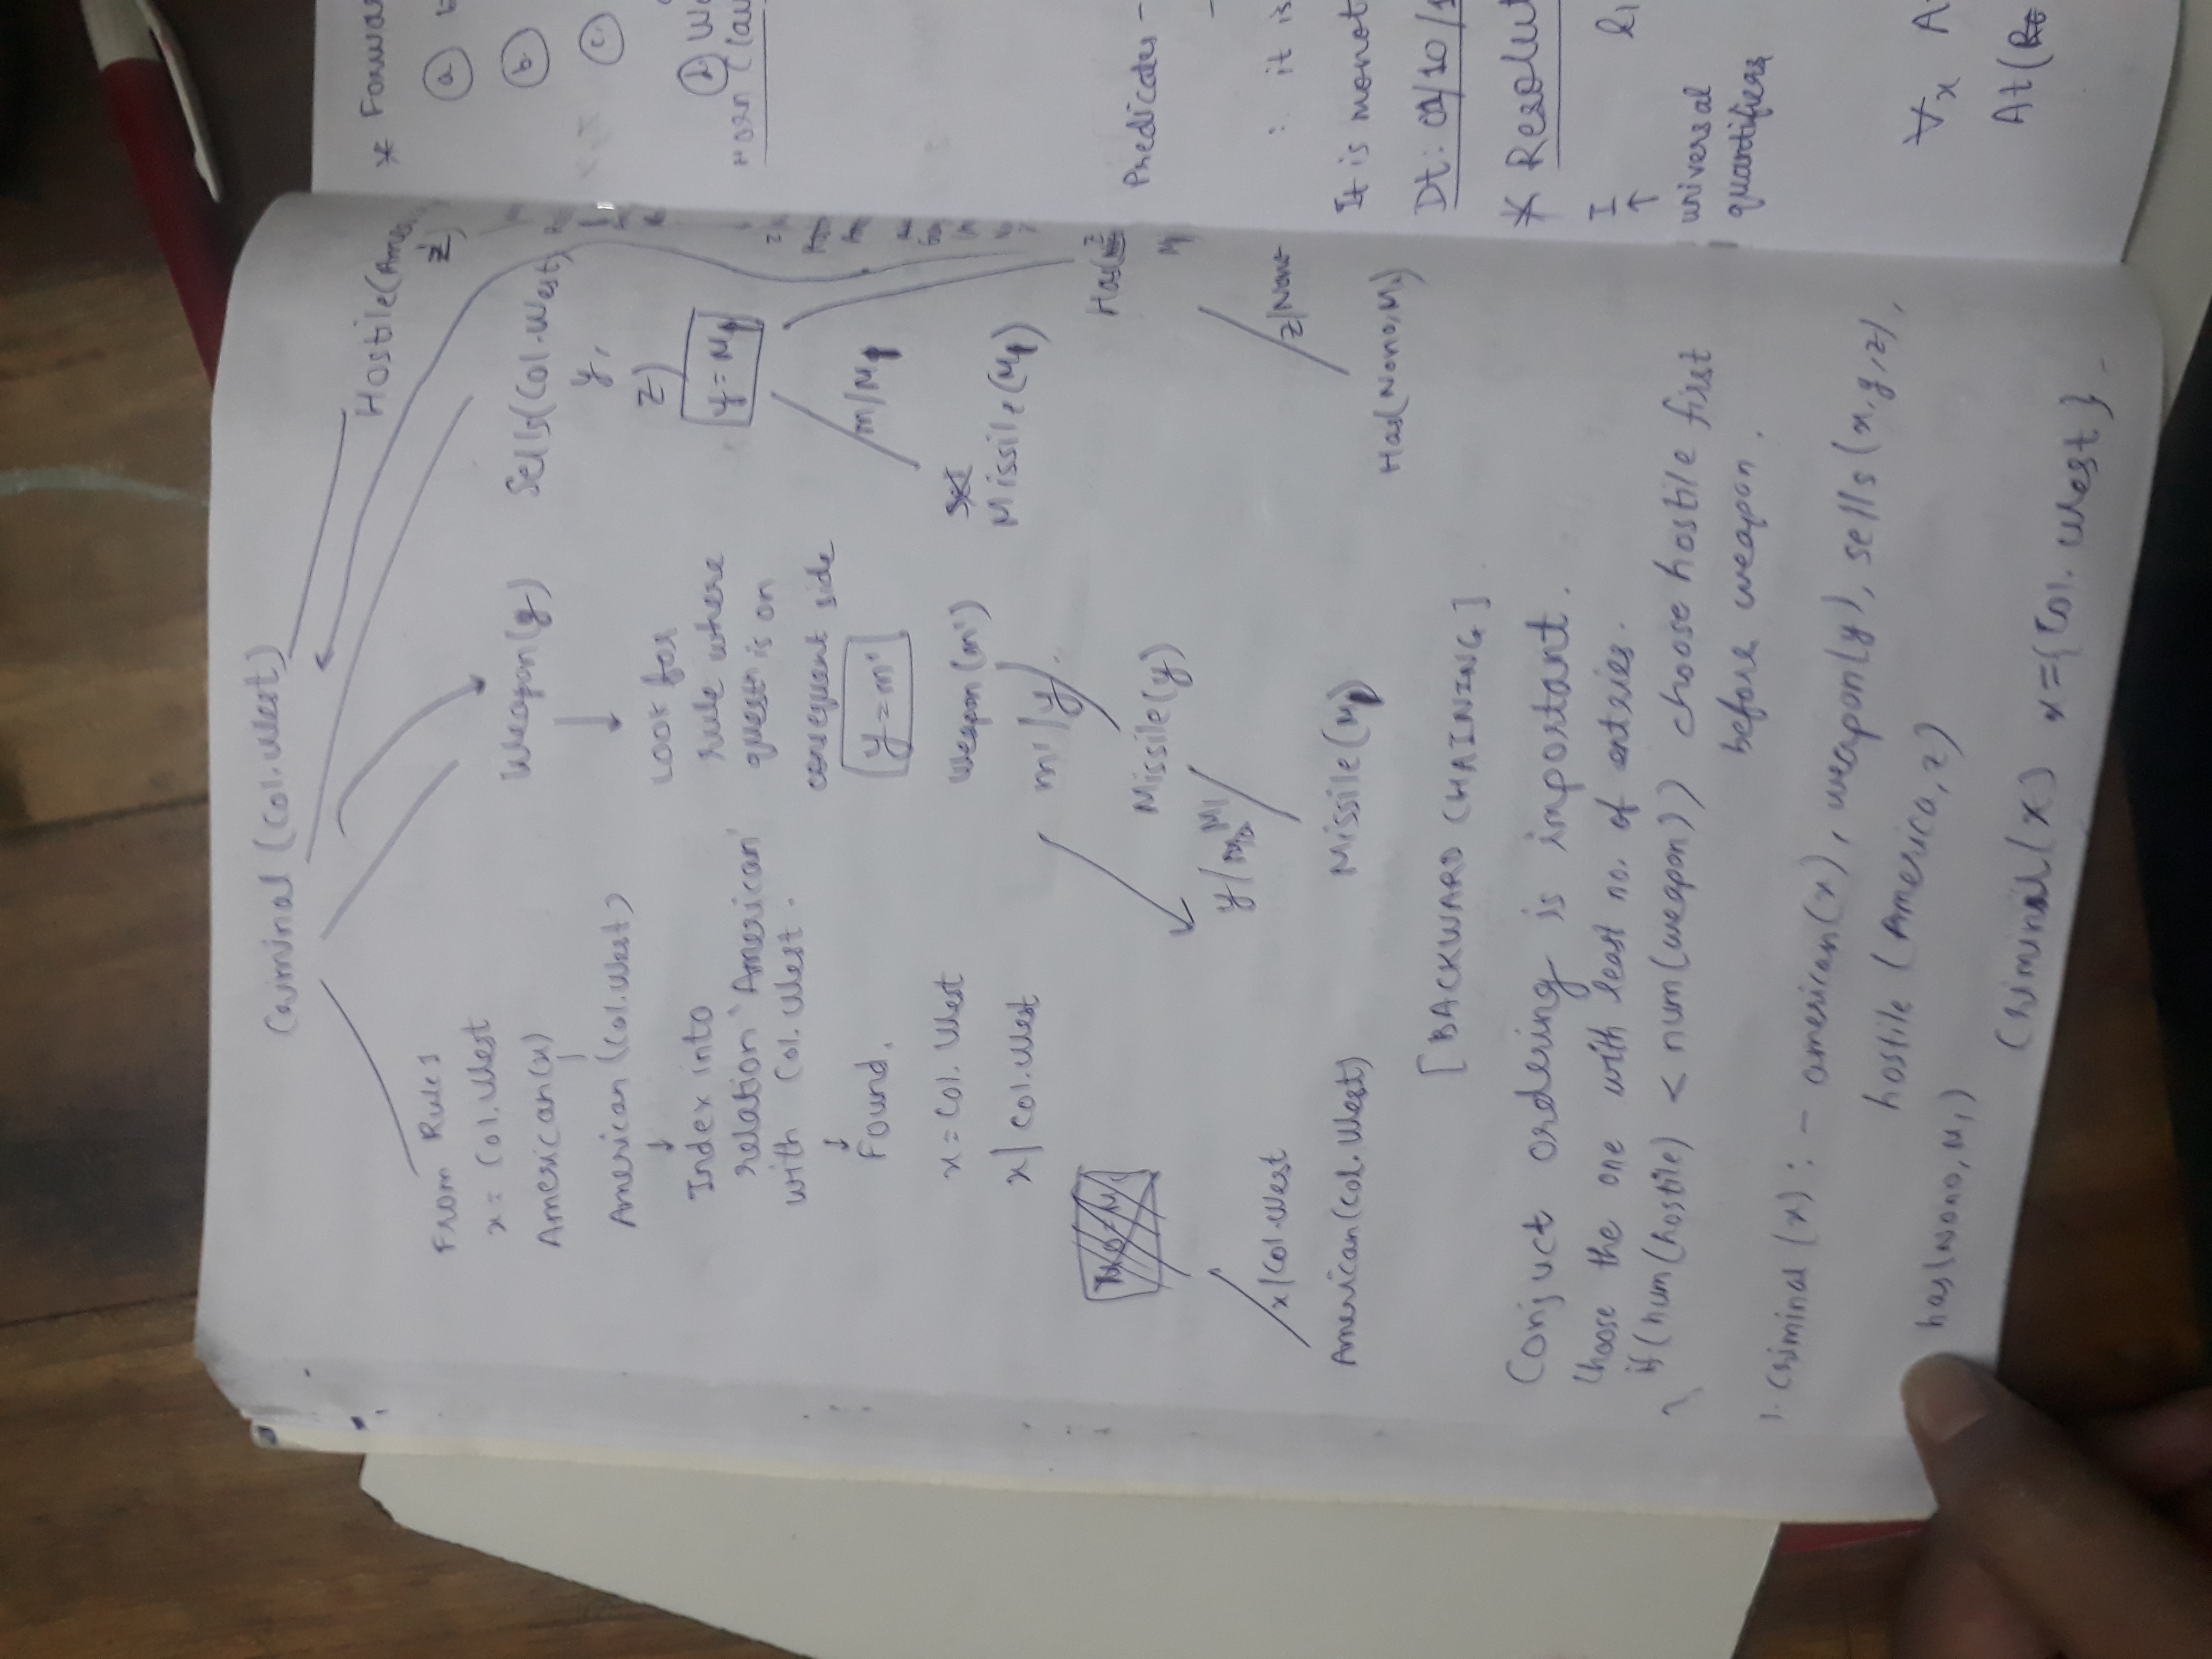 Criminal (Col. West)
From Rules
x = Col. West
American (x)
American (Col. West)
Index into
relation 'American'
with Col. West.
Found.
x = Col. West
x | Col. West
x / Col. West
American (Col. West)
Weapon (y)
Look for
rule where
questn is on
consequent side
y = m'
Weapon (m')
m' / y
Missile (y)
y / M1
Missile (M1)
Hostile (Ame
z)
Sells (Col. West,
y,
z)
y = M1
m / M1
Missile (M1)
Has(
z / Nono
Has (Nono, M1)
[BACKWARD CHAINING].
Conjuct ordering is important.
Choose the one with least no. of entries.
if (num (hostile) < num (weapon)) choose hostile first
before weapon.
1. Criminal (x) : - american (x), weapon (y), sells (x, y, z),
hostile (America, z)
has (Nono, M1)
Criminal (x) x = {Col. West}.
* Forwar
a
b
c
d
Horn Clau
Predicates -
: it is
It is monot
Dt: 01/10/1
* Resolut
I
↑
universal
quantifiers
∀x A
At (